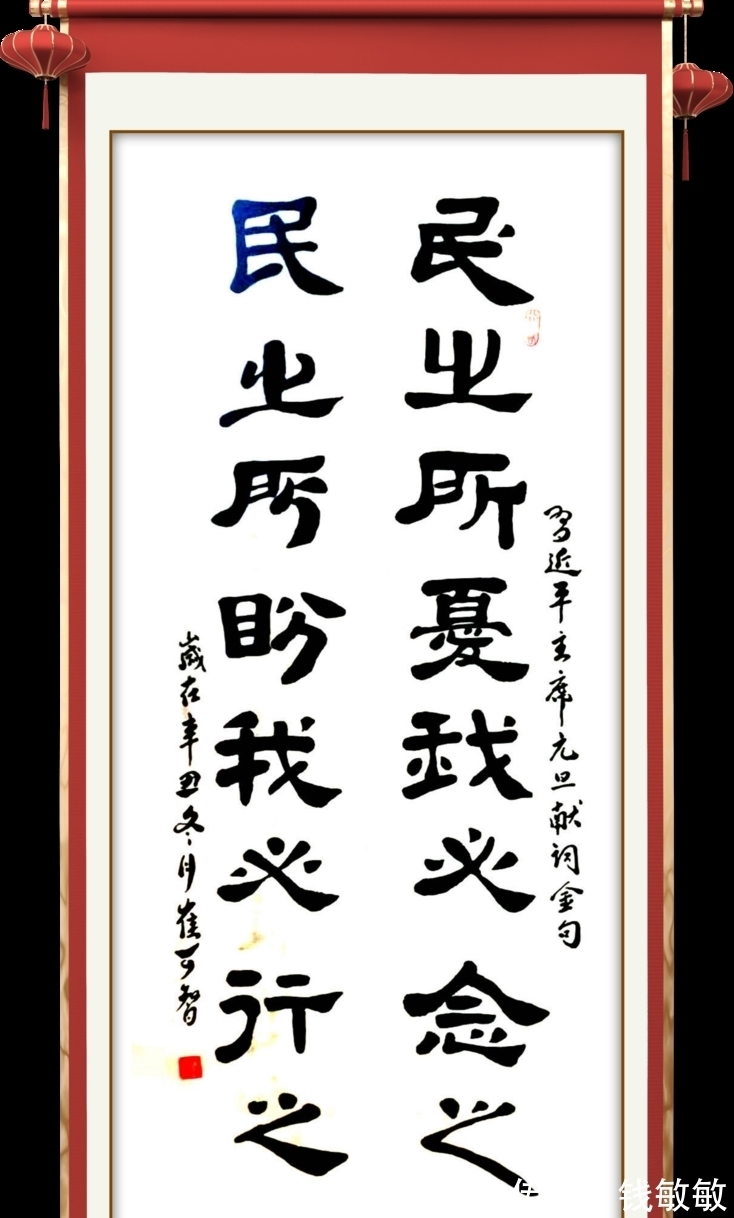 习近平主席元旦献词金句
民之所憂我必念之
民之所盼我必行之
嵗在辛丑冬月崔可智
钱敏敏